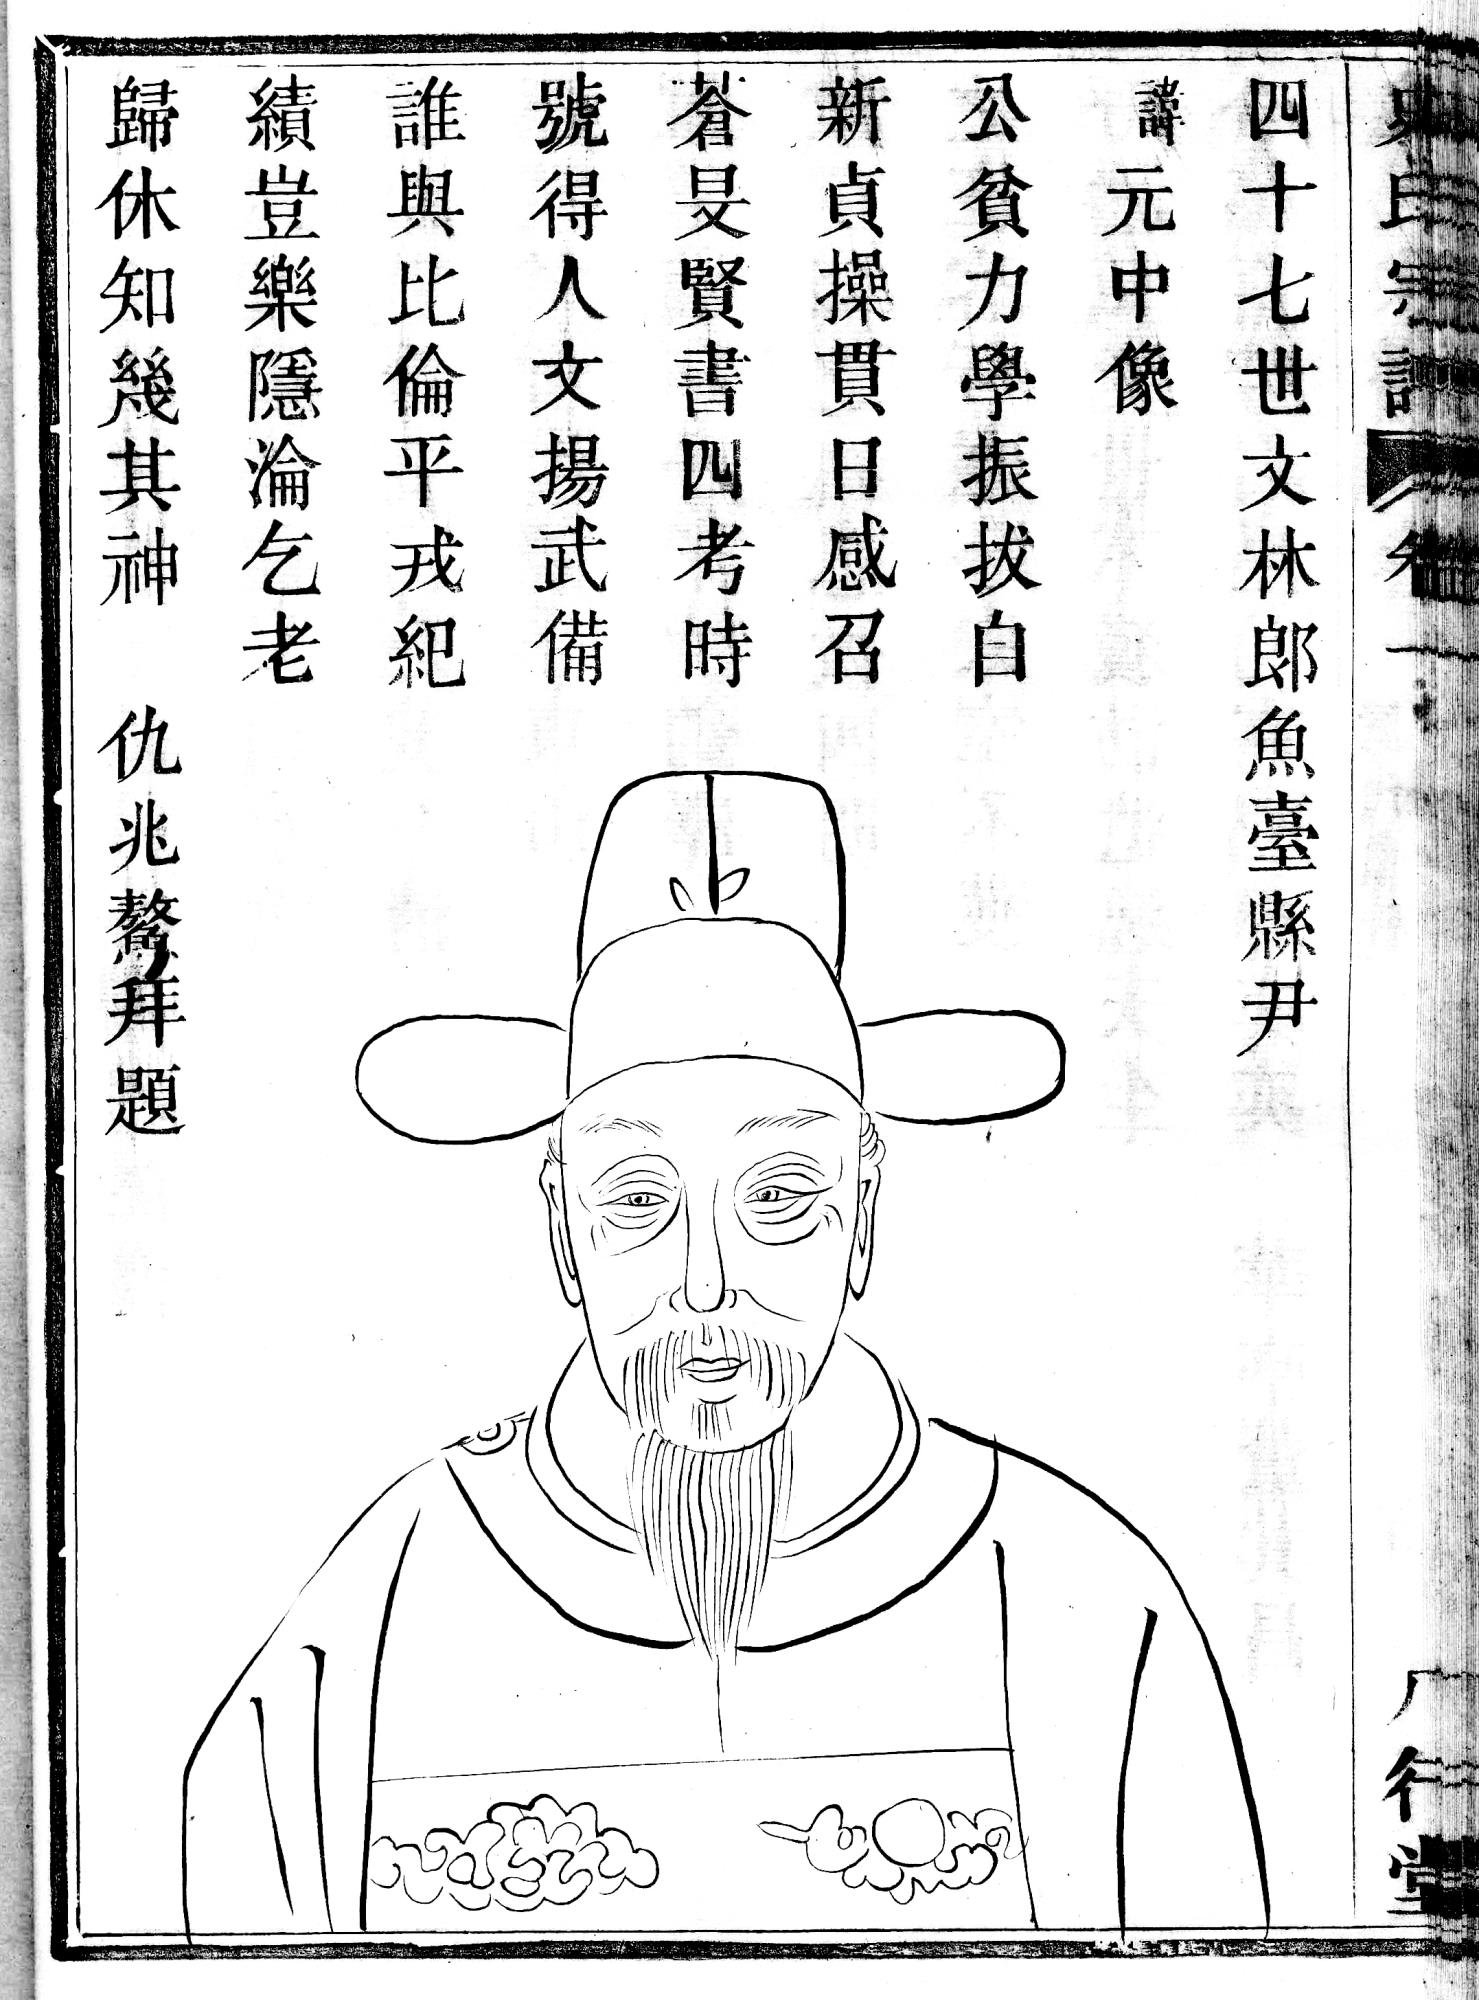 史氏宗譜 卷一 八行堂
四十七世文林郎魚臺縣尹
諱元中像
公貧力學振拔自
新貞操貫日感召
蒼旻賢書四考時
號得人文揚武備
誰與比倫平戎紀
績豈樂隱淪乞老
歸休知幾其神 仇兆鰲拜題